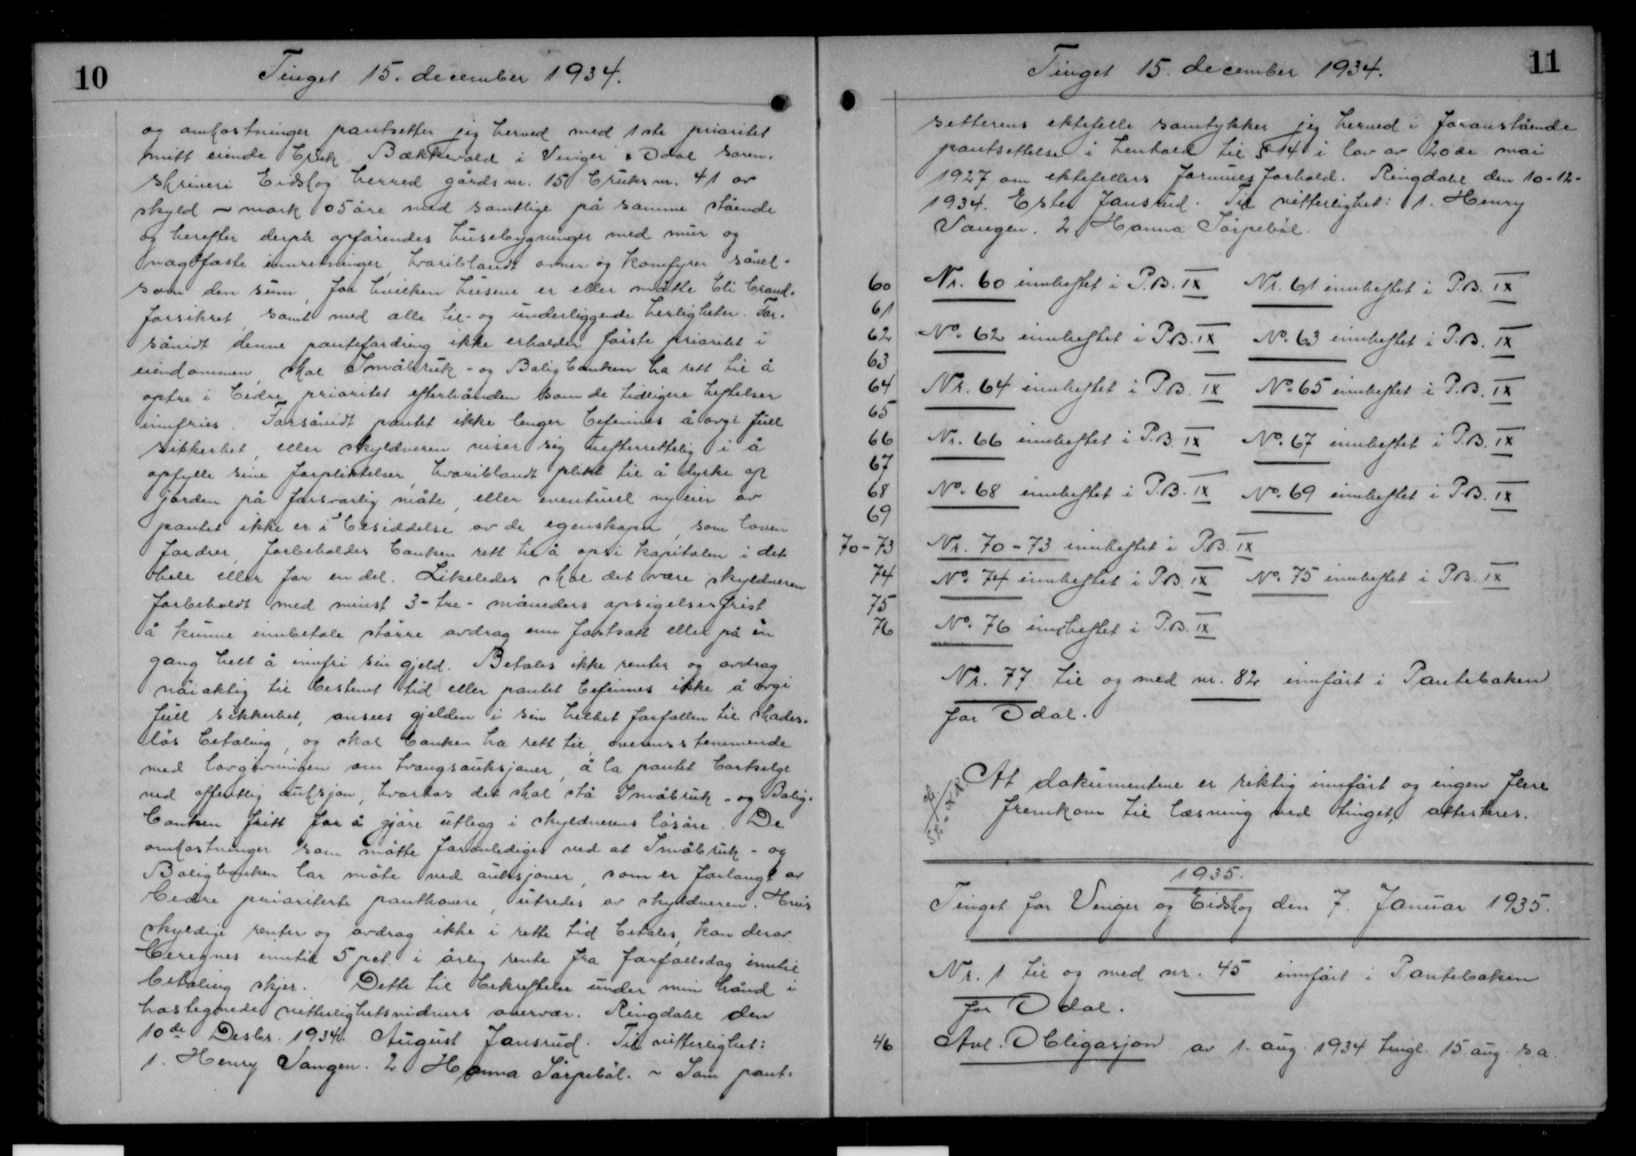 10
Tinget 15. december 1934.
og omkostninger pantsetter jeg herved med 1ste prioritet
mitt eiende bruk Bækkevold i Vinger & Odal soren-
skriveri Eidskog herred gårds nr. 15 bruks nr. 41 av
skyld ~ mark 05 øre med samtlige på samme stående
og herefter derpå opførendes husebygninger med mur og
nagfaste innretninger, hvoriblandt ovner og komfyrer såvel-
som den sum, for hvilken husene er eller måtte bli brand-
forsikret, samt med alle til- og underliggende herligheter. For-
såvidt denne pantefordring ikke erholder første prioritet i
eiendommen, skal Småbruk- og Boligbanken ha rett til å
optre i bedre prioritet efterhånden som de tidligere heftelser
innfries. Forsåvidt pantet ikke lenger befinnes å avgi full
sikkerhet, eller skyldneren viser sig uefterrettelig i å
opfylle sine forpliktelser, hvoriblandt plikt til å dyrke op
jorden på forsvarlig måte, eller eventuell ny eier av
pantet ikke er i besiddelse av de egenskaper, som loven
fordrer, forbeholdes banken rett til å opsi kapitalen i det
hele eller for en del. Likeledes skal det være skyldneren
forbeholdt med minst 3-tre- måneders opsigelsesfrist
å kunne innbetale større avdrag enn fastsatt eller på én
gang helt å innfri sin gjeld. Betales ikke renter og avdrag
nøiaktig til bestemt tid eller pantet befinnes ikke å avgi
full sikkerhet, ansees gjelden i sin helhet forfallen til skades-
løs betaling, og skal banken ha rett til, overensstemmende
med lovgivningen om tvangsauksjoner, å la pantet bortselge
ved offentlig auksjon, hvorhos det skal stå Småbruk- og Bolig-
banken fritt for å gjøre utlegg i skyldnerens løsøre. De
omkostninger som måtte foranlediges ved at Småbruk- og
Boligbanken lar møte ved auksjoner, som er forlangt av
bedre prioriterte panthavere, utredes av skyldneren. Hvis
skyldige renter og avdrag ikke i rette tid betales, kan derav
beregnes inntil 5 pct i årlig rente fra forfallsdag inntil
betaling skjer. Dette til bekreftelse under min hånd i
hostegnede vitterlighetsvidners overvær. Ringdalel den
10de Desbr. 1934. August Jansrud. Til vitterlighet:
1. Henry Vangen. 2 Hanna Sørpebøl. ~ Som pant-
11
Tinget 15. december 1934.
setterens ektefelle samtykker jeg herved i foranstående
pantsettelse i henhold til § 14 i lov av 20de mai
1927 om ektefellers formuesforhold. Ringdalel den 10-12-
1934. Ester Jansrud. Til vitterlighet: 1. Henry
Vangen. 2 Hanna Sørpebøl.
60 Nr. 60 innheftet i P.B. IX Nr. 61 innheftet i P.B. IX
61
62 No. 62 innheftet i P.B. IX No. 63 innheftet i P.B. IX
63
64 Nr. 64 innheftet i P.B. IX No. 65 innheftet i P.B. IX
65
66 Nr. 66 innheftet i P.B. IX No. 67 innheftet i P.B. IX
67
68 No. 68 innheftet i P.B. IX No. 69 innheftet i P.B. IX
69
70-73 Nr. 70-73 innheftet i P.B. IX
74 No. 74 innheftet i P.B. IX No. 75 innheftet i P.B. IX
75
76 No. 76 innheftet i P.B. IX
Nr. 77 til og med nr. 82 innført i Panteboken
for Odal.
At dokumentene er riktig innført og ingen flere
fremkom til læsning ved tinget, attesteres.
1935.
Tinget for Vinger og Eidskog den 7. Januar 1935.
Nr. 1 til og med nr. 45 innført i Panteboken
for Odal.
46 Avl. Obligasjon av 1. aug. 1934 tingl. 15. aug. s.a.